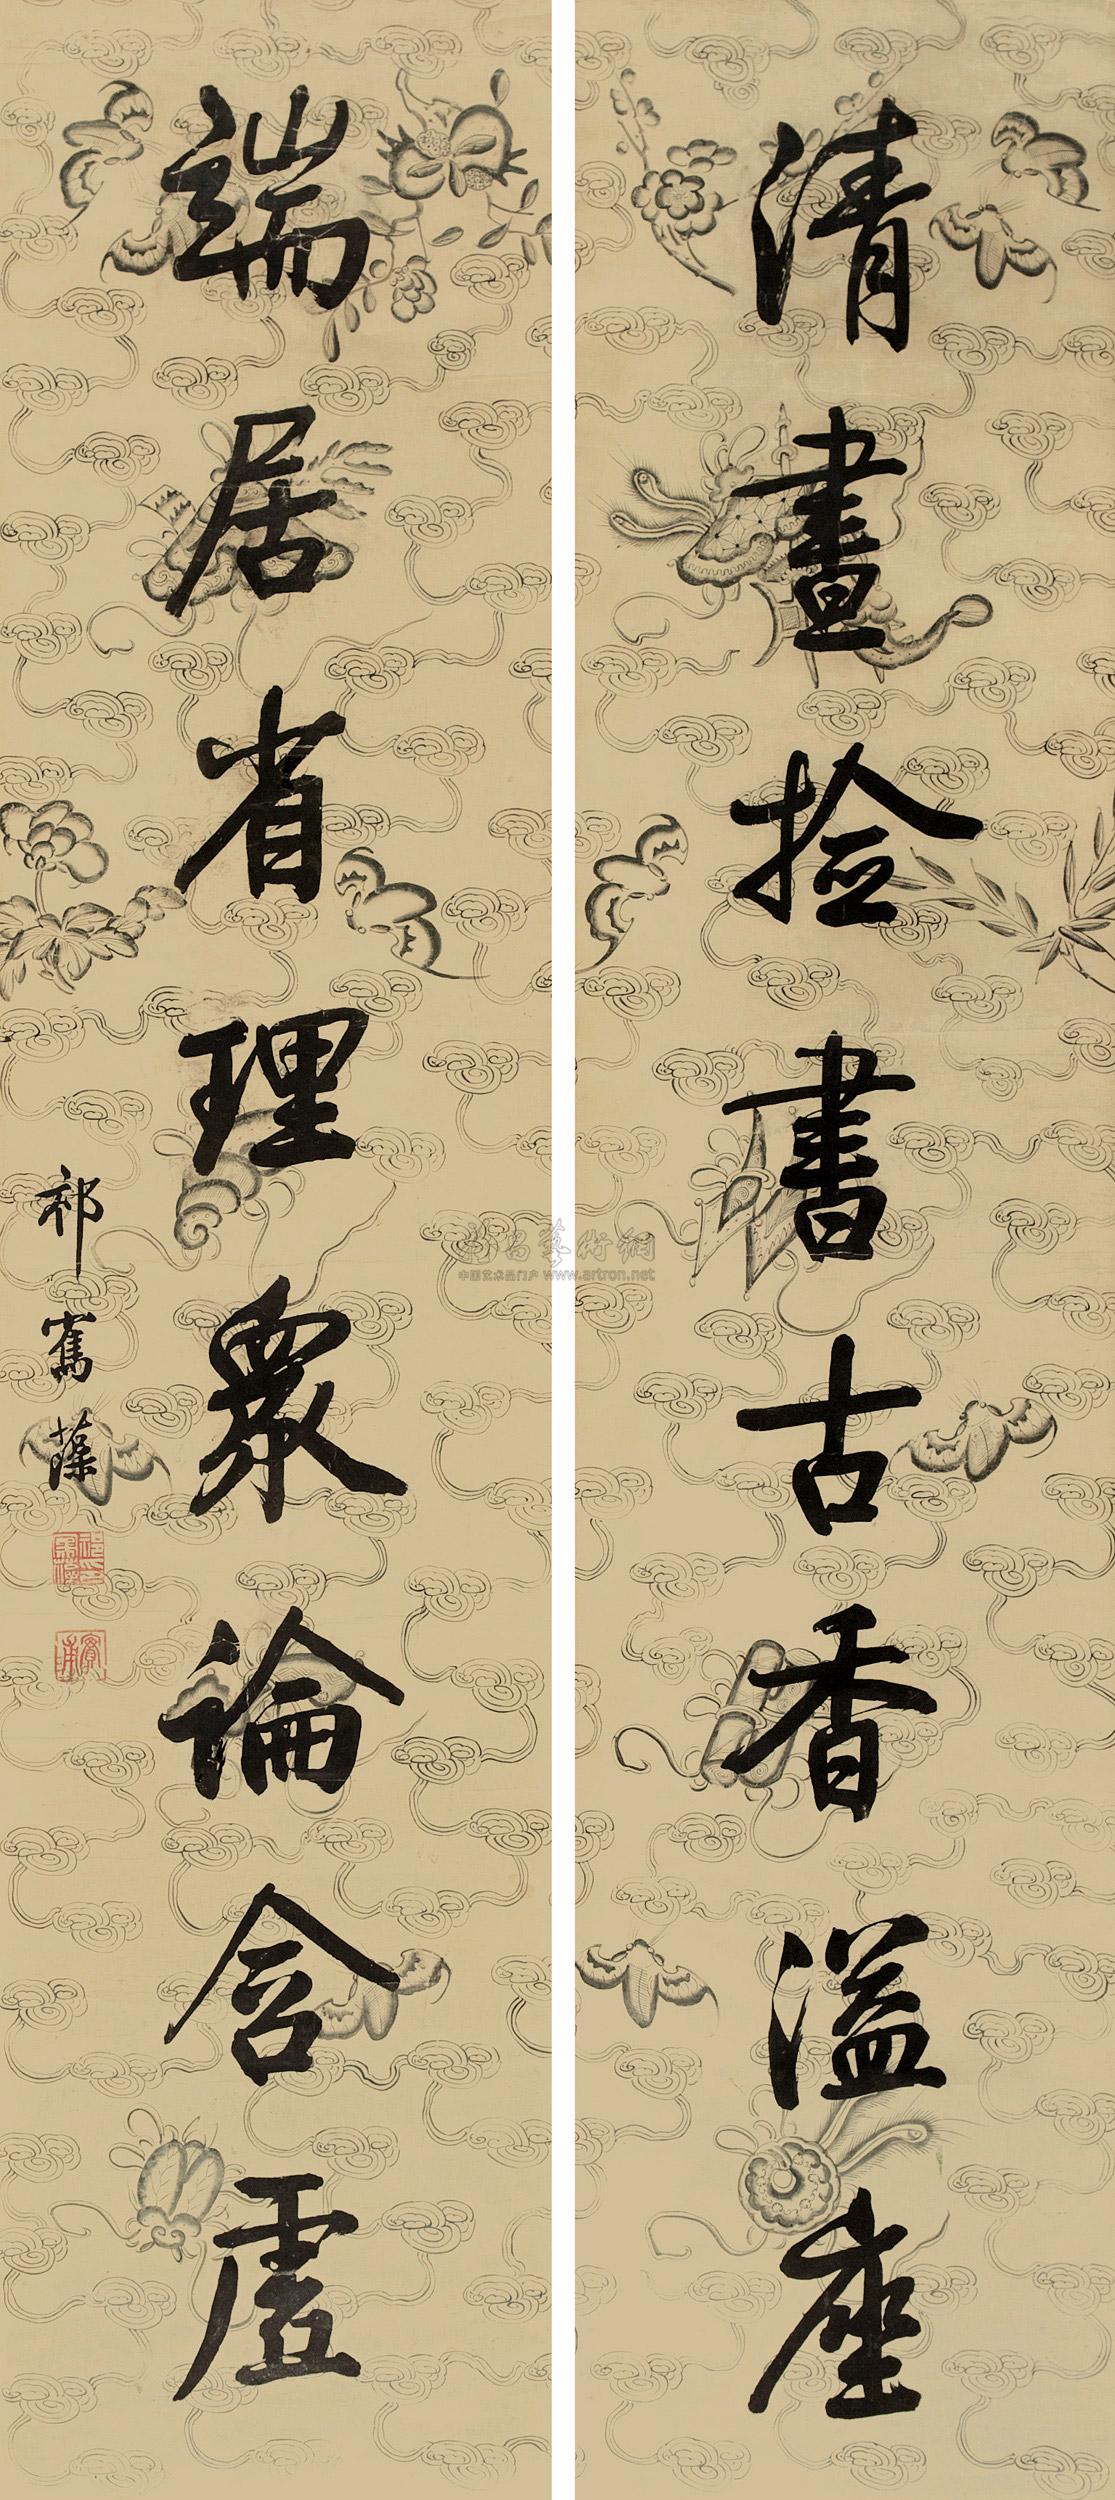 清晝撿書古香溢座
端居省理眾論含虛
祁寯藻
實甫
雅昌藝術網
中国艺术品门户 www.artron.net